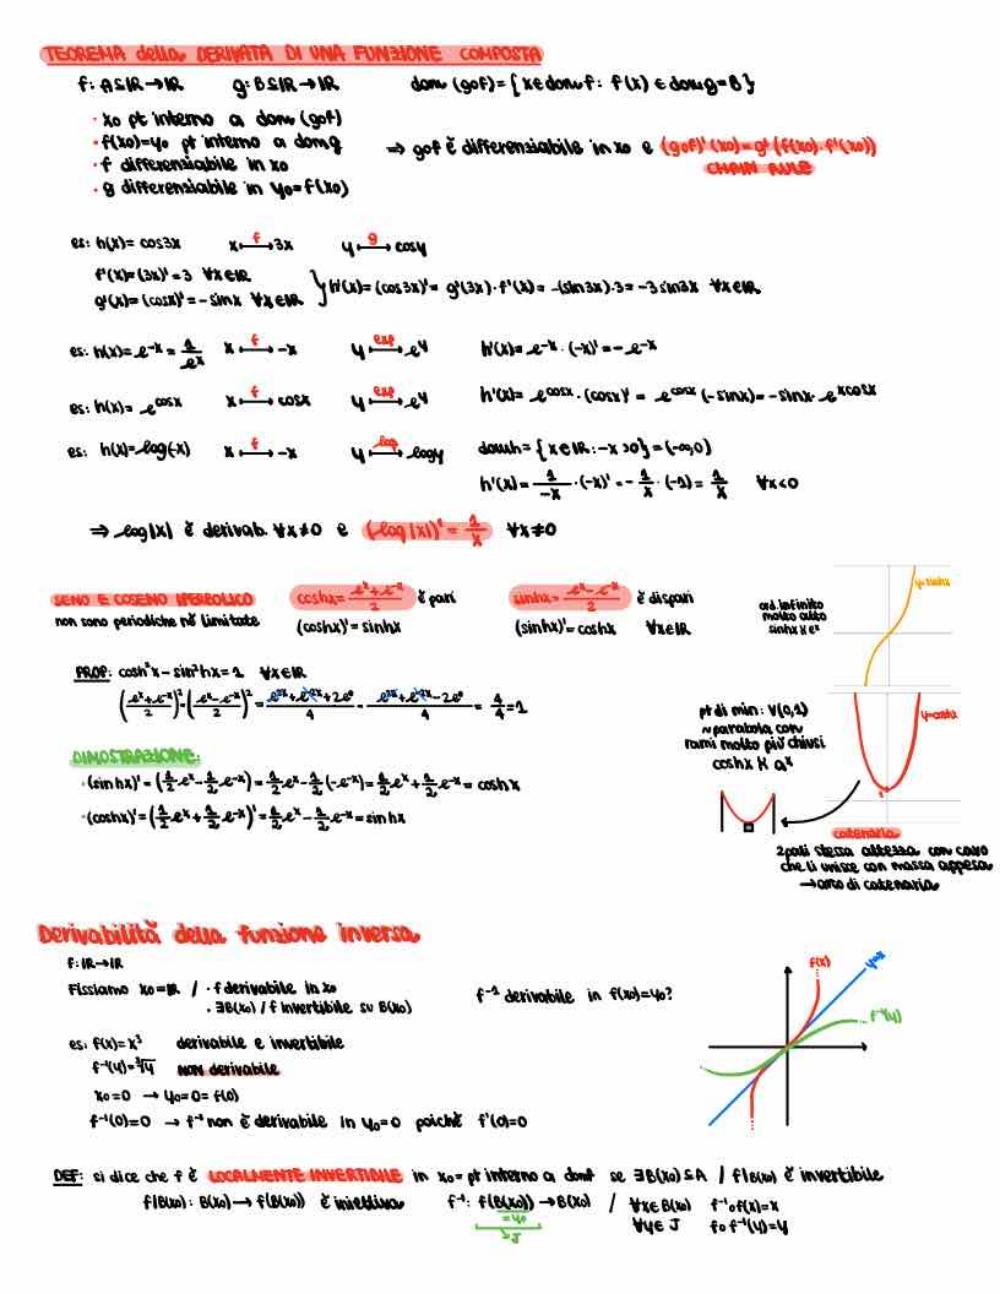 TEOREMA della DERIVATA DI UNA FUNZIONE COMPOSTA
f: A⊆IR→IR g: B⊆IR→IR dom (gof) = {x∈domf: f(x) ∈ domg=B}
· x0 pt interno a dom (gof)
· f(x0)=y0 pt interno a domg ⇒ gof è differenziabile in x0 e (gof)'(x0)=g'(f(x0)·f'(x0))
· f differenziabile in x0 CHAIN RULE
· g differenziabile in y0=f(x0)
es: h(x)= cos3x x f↦ 3x y g↦ cosy
f'(x)=(3x)'=3 ∀x∈IR
g'(x)=(cosx)'=-sinx ∀x∈IR } h'(x)=(cos3x)'= g'(3x)·f'(x)= -(sin3x)·3=-3sin3x ∀x∈IR
es: h(x)=e^-x = 1/e^x x f↦ -x y exp↦ e^y h'(x)= e^-x · (-x)'=-e^-x
es: h(x)= e^cosx x f↦ cosx y exp↦ e^y h'(x)= e^cosx · (cosx)' = e^cosx (-sinx)=-sinx·e^xcosx
es: h(x)=log(-x) x f↦ -x y log↦ logy domh={x∈IR:-x>0}=(-∞,0)
h'(x)= 1/-x ·(-x)'=- 1/x ·(-1)= 1/x ∀x<0
⇒ log|x| è derivab. ∀x≠0 e (log|x|)'= 1/x ∀x≠0
SENO E COSENO IPERBOLICO coshx= e^x+e^-x/2 è pari sinhx= e^x-e^-x/2 è dispari
non sono periodiche nè limitate (coshx)'=sinhx (sinhx)'=coshx ∀x∈IR
ord. infinito
molto alto
sinhx ≍ e^x
y=sinhx
PROP: cosh²x-sin²hx=1 ∀x∈IR
(e^x+e^-x/2)²-(e^x-e^-x/2)² = e^2x+e^-2x+2e^0/4 - e^2x+e^-2x-2e^0/4 = 4/4=1
pt di min: V(0,1)
~parabola con
rami molto più chiusi
coshx ≍ a^x
y=coshx
DIMOSTRAZIONE:
·(sinhx)'=(1/2 e^x-1/2 e^-x)=1/2 e^x-1/2(-e^-x)=1/2 e^x+1/2 e^-x=coshx
·(coshx)'=(1/2 e^x+1/2 e^-x)'=1/2 e^x-1/2 e^-x=sinhx
catenaria
2 pali stessa altezza con cavo
che li unisce con massa appesa
→arco di catenaria
Derivabilità della funzione inversa
f: IR→IR
Fissiamo x0=IR / · f derivabile in x0
· ∃B(x0) / f invertibile su B(x0) f^-1 derivabile in f(x0)=y0?
f(x) y=x f^-1(y)
es: f(x)=x³ derivabile e invertibile
f^-1(y)=³√y NON derivabile
x0=0 → y0=0= f(0)
f^-1(0)=0 → f^-1 non è derivabile in y0=0 poichè f'(0)=0
DEF: si dice che f è LOCALMENTE INVERTIBILE in x0= pt interno a domf se ∃B(x0)⊆A / f|B(x0) è invertibile
f|B(x0): B(x0)→f(B(x0)) è iniettiva f^-1: f(B(x0))→B(x0) / ∀x∈B(x0) f^-1of(x)=x
=y0 ∀y∈J fof^-1(y)=y
→J